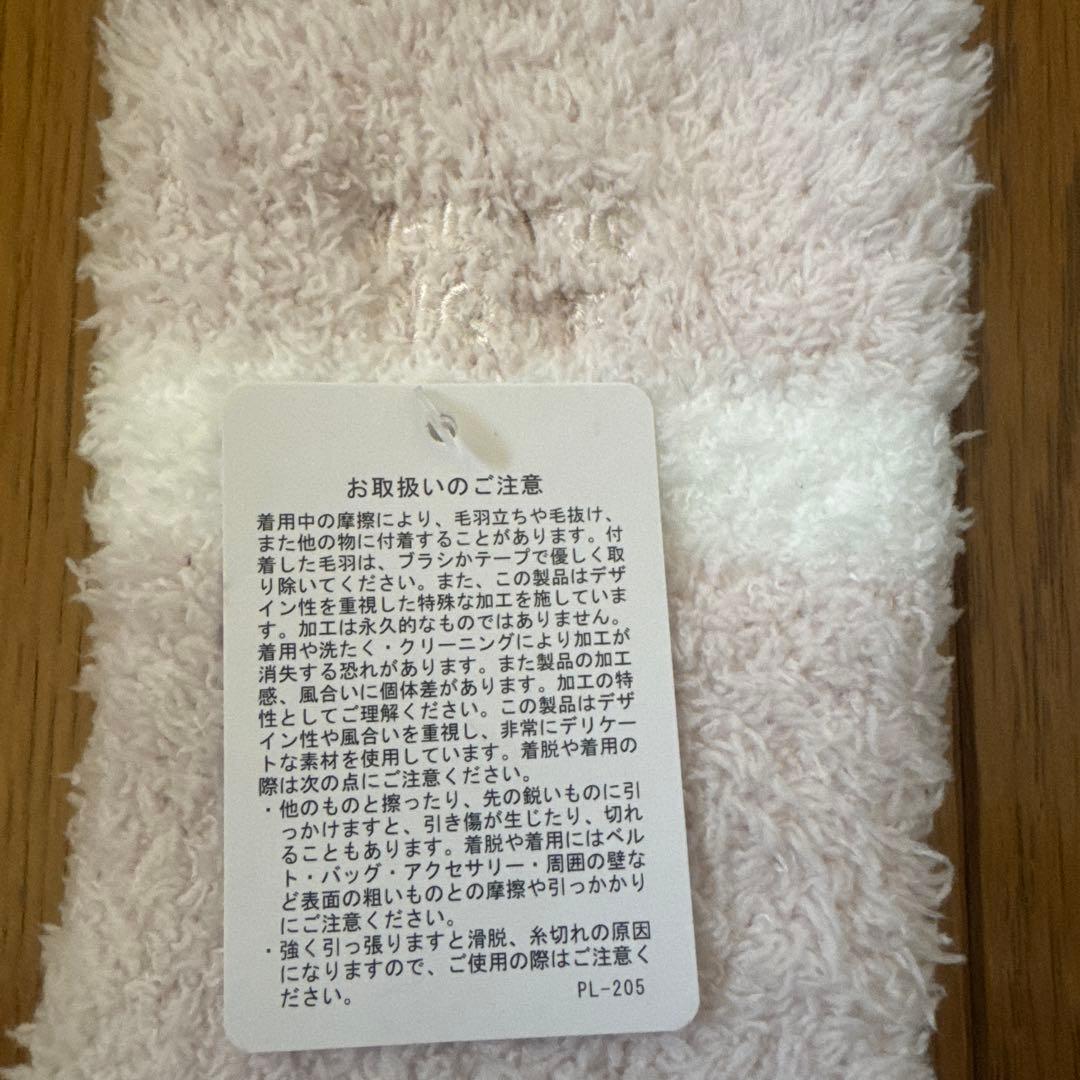 お取扱いのご注意
着用中の摩擦により、毛羽立ちや毛抜け、
また他の物に付着することがあります。付
着した毛羽は、ブラシかテープで優しく取
り除いてください。また、この製品はデザ
イン性を重視した特殊な加工を施していま
す。加工は永久的なものではありません。
着用や洗たく・クリーニングにより加工が
消失する恐れがあります。また製品の加工
感、風合いに個体差があります。加工の特
性としてご理解ください。この製品はデザ
イン性や風合いを重視し、非常にデリケー
トな素材を使用しています。着脱や着用の
際は次の点にご注意ください。
・他のものと擦ったり、先の鋭いものに引
っかけますと、引き傷が生じたり、切れ
ることもあります。着脱や着用にはベル
ト・バッグ・アクセサリー・周囲の壁な
ど表面の粗いものとの摩擦や引っかかり
にご注意ください。
・強く引っ張りますと滑脱、糸切れの原因
になりますので、ご使用の際はご注意く
ださい。
PL-205